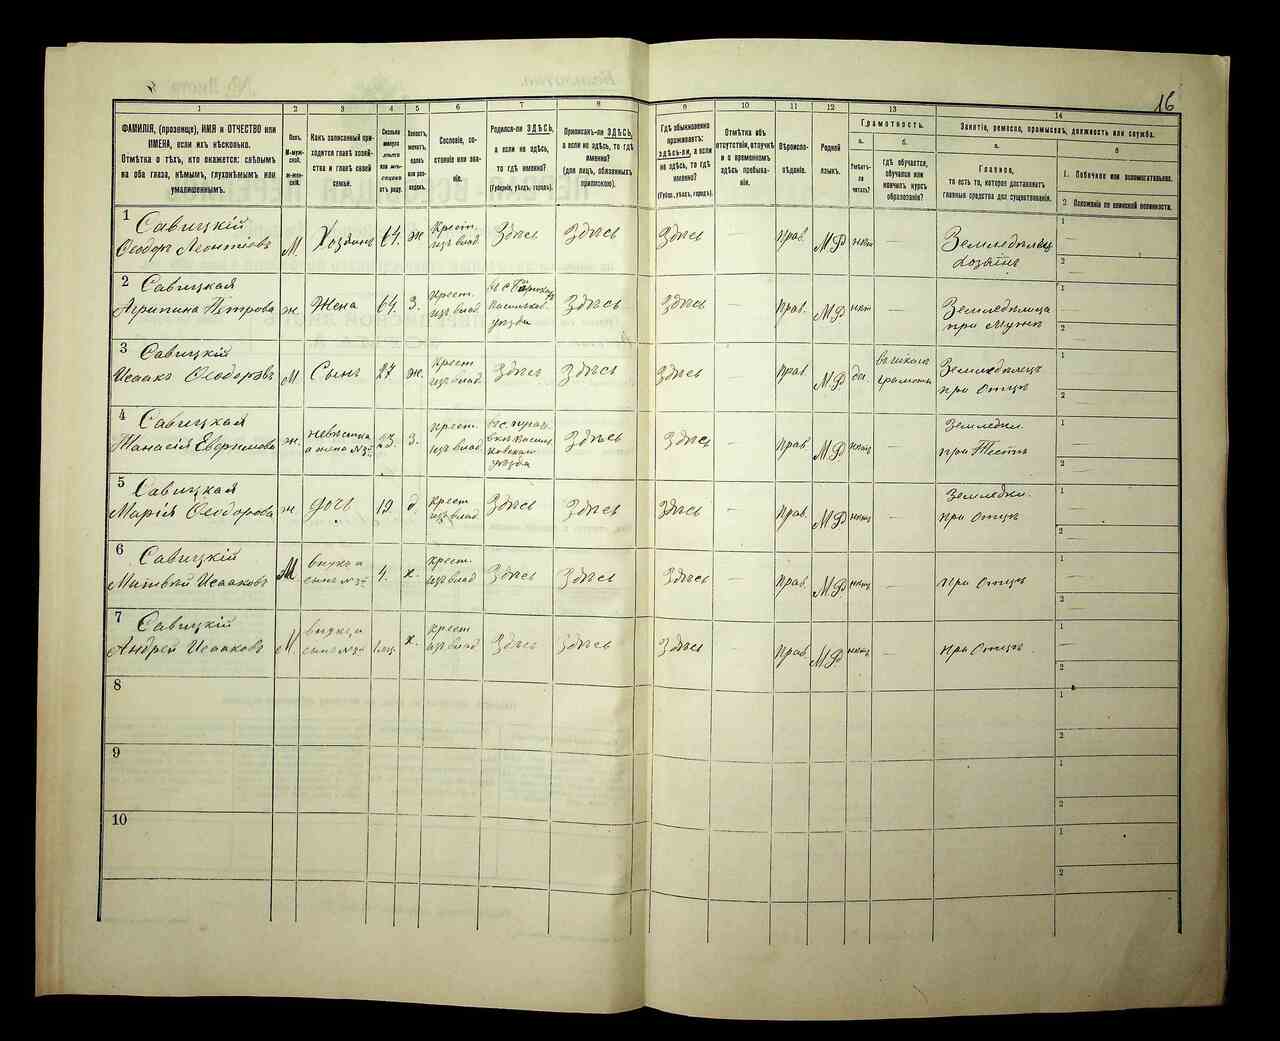 16
1 2 3 4 5 6 7 8 9 10 11 12 13 14
ФАМИЛІЯ, (прозвище), ИМЯ и ОТЧЕСТВО или ИМЕНА, если ихъ нѣсколько.
Отмѣтка о тѣхъ, кто окажется: слѣпымъ на оба глаза, нѣмымъ, глухонѣмымъ или умалишеннымъ.
Полъ.
М-мужской.
Ж-женскій.
Какъ записанный приходится главѣ хозяйства и главѣ своей семьи.
Сколько минуло лѣтъ или мѣсяцевъ отъ роду.
Холостъ, женатъ, вдовъ или разведенъ.
Сословіе, состояніе или званіе.
Родился-ли ЗДѢСЬ, а если не здѣсь, то гдѣ именно?
(Губернія, уѣздъ, городъ).
Приписанъ-ли ЗДѢСЬ, а если не здѣсь, то гдѣ именно?
(для лицъ, обязанныхъ припискою).
Гдѣ обыкновенно проживаетъ: здѣсь-ли, а если не здѣсь, то гдѣ именно?
(Губерн., уѣздъ, городъ).
Отмѣтка объ отсутствіи, отлучкѣ и о временномъ здѣсь пребываніи.
Вѣроисповѣданіе.
Родной языкъ.
Грамотность.
а.
Умѣетъ-ли читать?
б.
Гдѣ обучается, обучался или кончилъ курсъ образованія?
Занятіе, ремесло, промыселъ, должность или служба.
а.
Главное,
то есть то, которое доставляетъ главныя средства для существованія.
б
1. Побочное или вспомогательное.
2 Положеніе по воинской повинности.
1 Савицкій
Ѳеодоръ Леонтіевъ М. Хозяинъ 64. ж Крест. изъ влад. Здѣсь Здѣсь Здѣсь — Прав. М.Р нѣтъ — Земледѣлецъ Хозяинъ
1 —
2 —
2 Савицкая
Агрипина Петрова ж. Жена 64. З. Крест. изъ влад. въ с. уѣзда Здѣсь Здѣсь — Прав. М.Р нѣтъ — Земледѣлица при Мужѣ
1 —
2 —
3 Савицкій
Исаакъ Ѳеодоровъ М Сынъ 27 ж. Крест. изъ влад. Здѣсь Здѣсь Здѣсь — Прав М.Р да. въ школѣ грамоты Земледѣлецъ при Отцѣ
1 —
2 —
4 Савицкая
ж. невѣстка а жена №3й 23. З. Крест. изъ влад. въ с. уѣзда Здѣсь Здѣсь — Прав М.Р нѣтъ — Земледѣл. при Тестѣ
1 —
2 —
5 Савицкая
Марія Ѳеодорова ж дочь 19 д Крест. изъ влад. Здѣсь Здѣсь Здѣсь — Прав. М.Р нѣтъ — при Отцѣ
1 —
2 —
6 Савицкій
Матвѣй Исааковъ М. внукъ и сынъ №3й 4. х. Крест. изъ влад Здѣсь Здѣсь Здѣсь — Прав. М.Р нѣтъ — при Отцѣ
1 —
2 —
7 Савицкій
Андрей Исааковъ М. внукъ и сынъ №3й х. Крест изъ влад Здѣсь Здѣсь Здѣсь — Прав. М.Р нѣтъ — при Отцѣ.
1 —
2 —
8
1
2
9
1
2
10
1
2